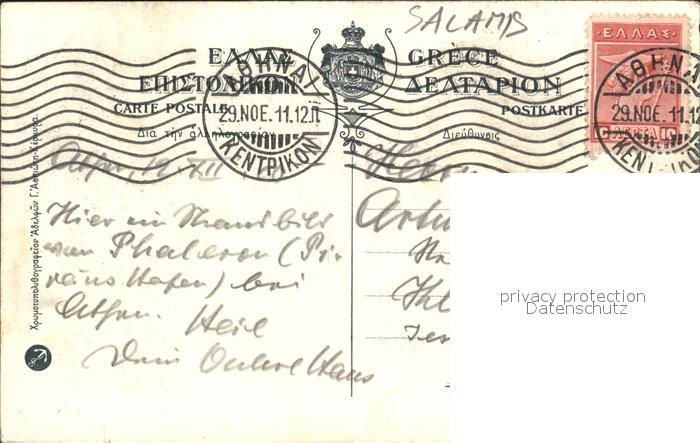 SALAMIS
ΕΛΛΑΣ GRÈCE
ΕΠΙΣΤΟΛΙΚΟΝ ΔΕΛΤΑΡΙΟΝ
CARTE POSTALE POSTKARTE
Διὰ τὴν ἀλληλογραφίαν Διεύθυνσις
ΕΛΛΑΣ
ΛΕΠΤΑ 10
ΑΘΗΝΑΙ
29.ΝΟΕ.11.12.Π
ΚΕΝΤΡΙΚΟΝ
ΑΘΗΝΑ
29.ΝΟΕ.11.12
ΚΕΝ
Χρωματολιθογραφεῖον Ἀδελφῶν Γ. Ἀσπιώτη-Κέρκυρα.
Athen, 12 XII
Hier ein Strandbild
von Phaleron (Pi-
räus Hafen) bei
Athen. Heil
Dein Onkel Hans
Herrn
privacy protection
Datenschutz